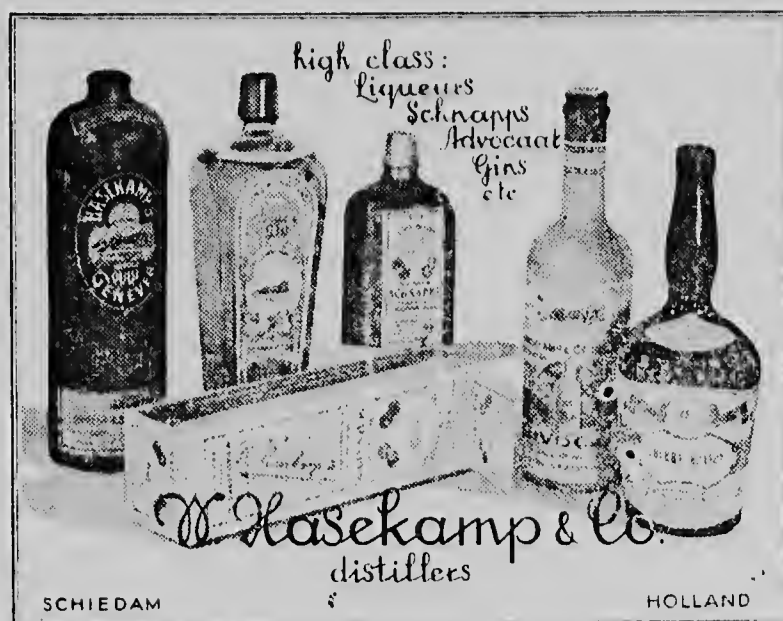 high class:
Liqueurs
Schnapps
Advocaat
Gins
etc
HASEKAMP'S
GENEVER
SCHNAPPS
W. Hasekamp & Co.
distillers
SCHIEDAM
HOLLAND